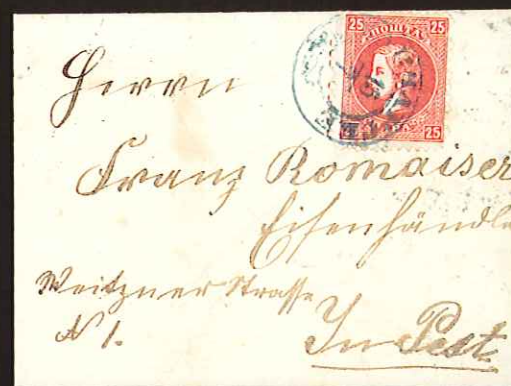 25 ПОШТА 25
25
Herrn
Franz Romaiser
Eisenhändle
Weitzner Strasse
N 1.
In Pest